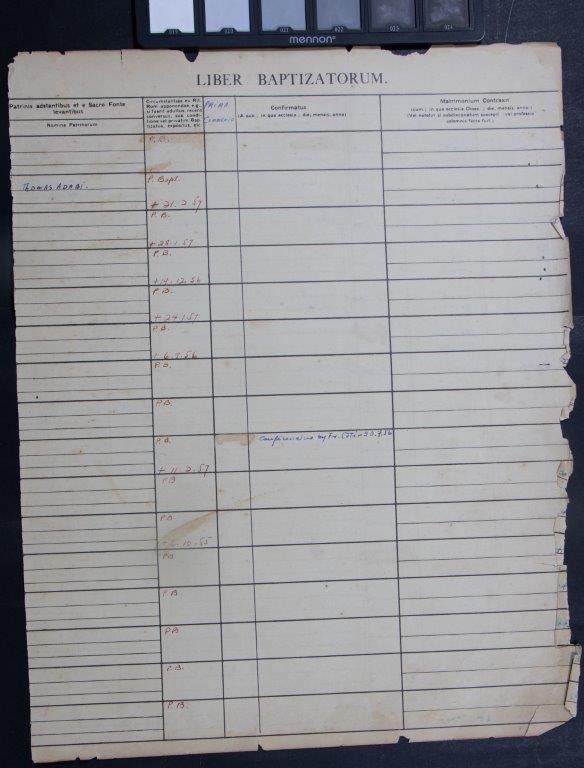 019 020 021 022 023 024
mennon
LIBER BAPTIZATORUM.
Patrinis adstantibus et e Sacro Fonte
levantibus
Nomina Patrinorum
Circumstantiae ex Rit.
Rom. apponendae, e.g.,
si fuerit adultus, recens
conversus, sub condi-
tione vel privatim Bap-
tizatus, expositus, etc.
PRIMA
Confirmatus
(A quo ; in qua ecclesia ; die, mensis, anno)
Matrimonium Contraxit
(cum ; in qua ecclesia Dioec. ; die, mensis, anno)
(Vel notetur si subdiaconatum suscepit vel professio
solemnis facta fuit.)
P.B.
P. Bapt.
THOMAS ADABI.
+ 21.2.57
P.B.
+ 28.1.57
P.B.
+ 14.12.56
P.B.
+ 24.1.57
P.B.
+ 6.9.56
P.B.
P.B.
P.B.
by Fr.
+ 11.2.57
P.B
P.B
.10.55
P.B
P.B
P.B
P.B.
P.B.